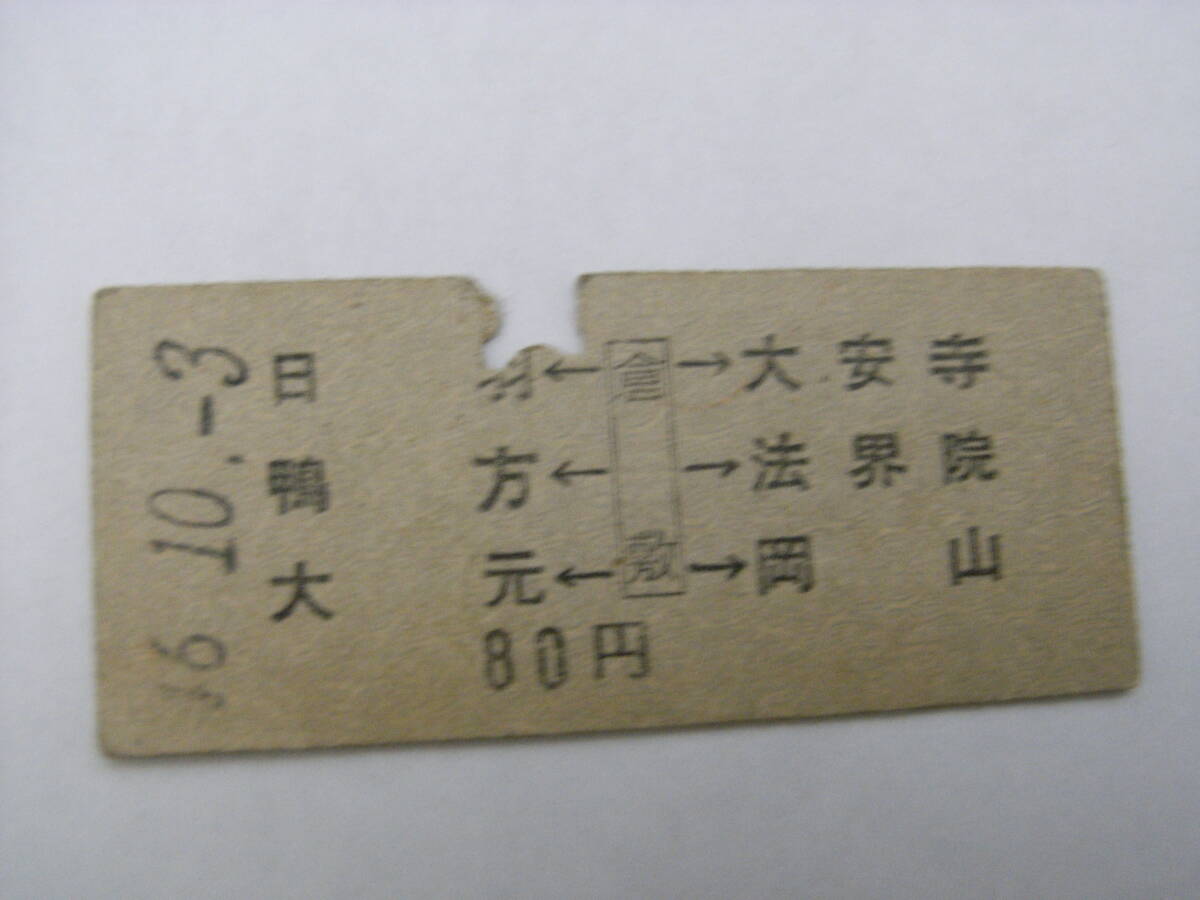 46.10.-3
日羽←倉敷→大安寺
鴨方← →法界院
大元← →岡山
80円